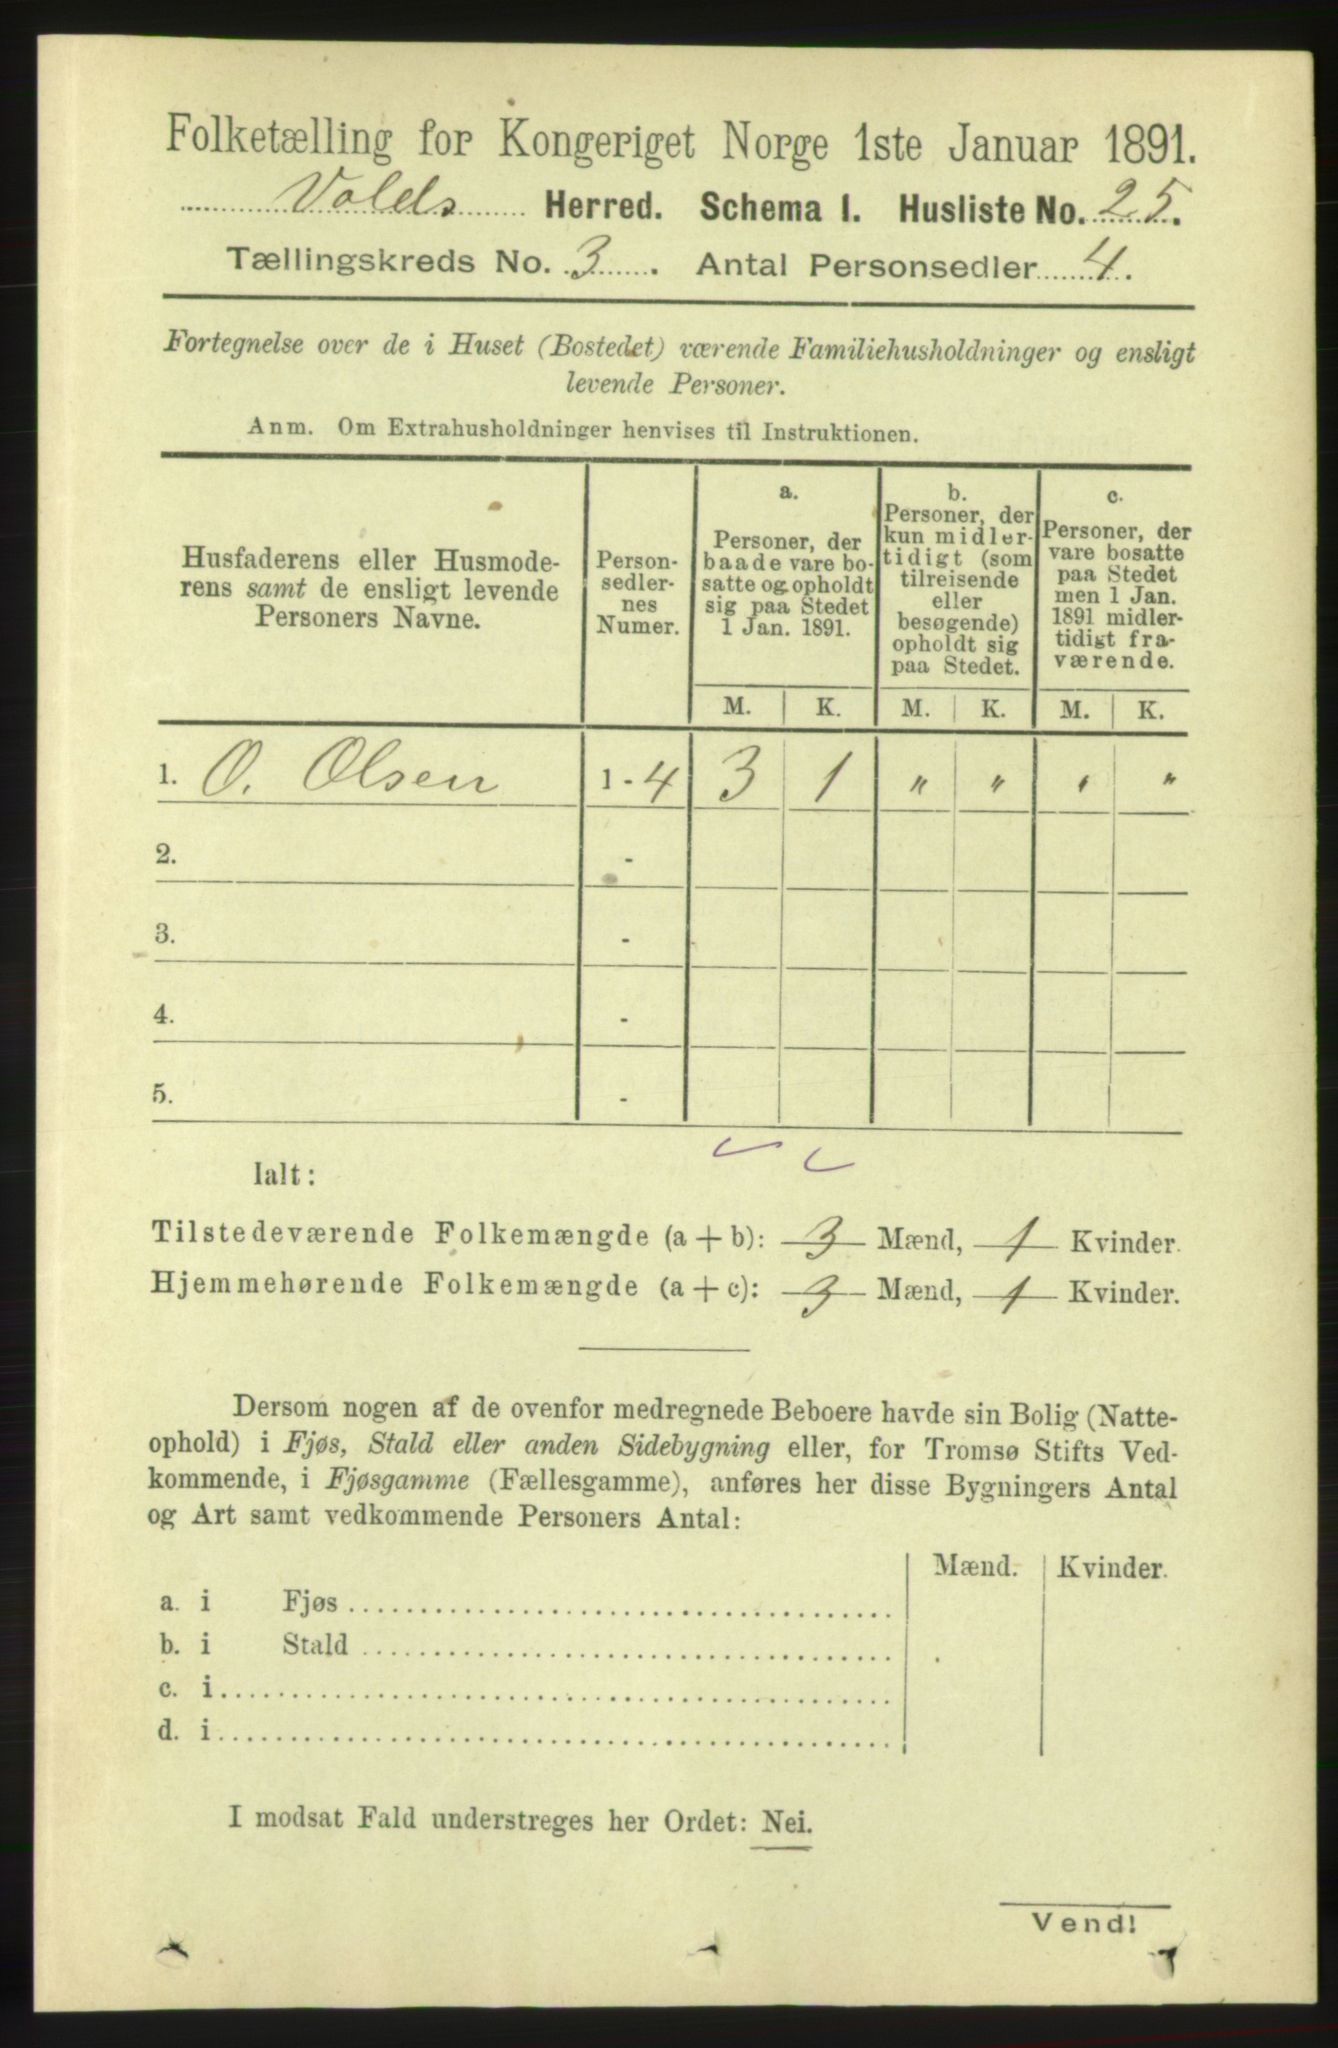 Folketælling for Kongeriget Norge 1ste Januar 1891.
Volds Herred. Schema I. Husliste No. 25.
Tællingskreds No. 3. Antal Personsedler 4.
Fortegnelse over de i Huset (Bostedet) værende Familiehusholdninger og ensligt
levende Personer.
Anm. Om Extrahusholdninger henvises til Instruktionen.
Husfaderens eller Husmode-
rens samt de ensligt levende
Personers Navne.
Person-
sedler-
nes
Numer.
a.
Personer, der
baade vare bo-
satte og opholdt
sig paa Stedet
1 Jan. 1891.
b.
Personer, der
kun midler-
tidigt (som
tilreisende
eller
besøgende)
opholdt sig
paa Stedet.
c.
Personer, der
vare bosatte
paa Stedet
men 1 Jan.
1891 midler-
tidigt fra-
værende.
M. K. M. K. M. K.
1. O. Olsen 1 - 4 3 1 " " " "
2. -
3. -
4. -
5. -
Ialt:
Tilstedeværende Folkemængde (a + b): 3 Mænd, 1 Kvinder.
Hjemmehørende Folkemængde (a + c): 3 Mænd, 1 Kvinder.
Dersom nogen af de ovenfor medregnede Beboere havde sin Bolig (Natte-
ophold) i Fjøs, Stald eller anden Sidebygning eller, for Tromsø Stifts Ved-
kommende, i Fjøsgamme (Fællesgamme), anføres her disse Bygningers Antal
og Art samt vedkommende Personers Antal:
Mænd. Kvinder.
a. i Fjøs
b. i Stald
c. i
d. i
I modsat Fald understreges her Ordet: Nei.
Vend!